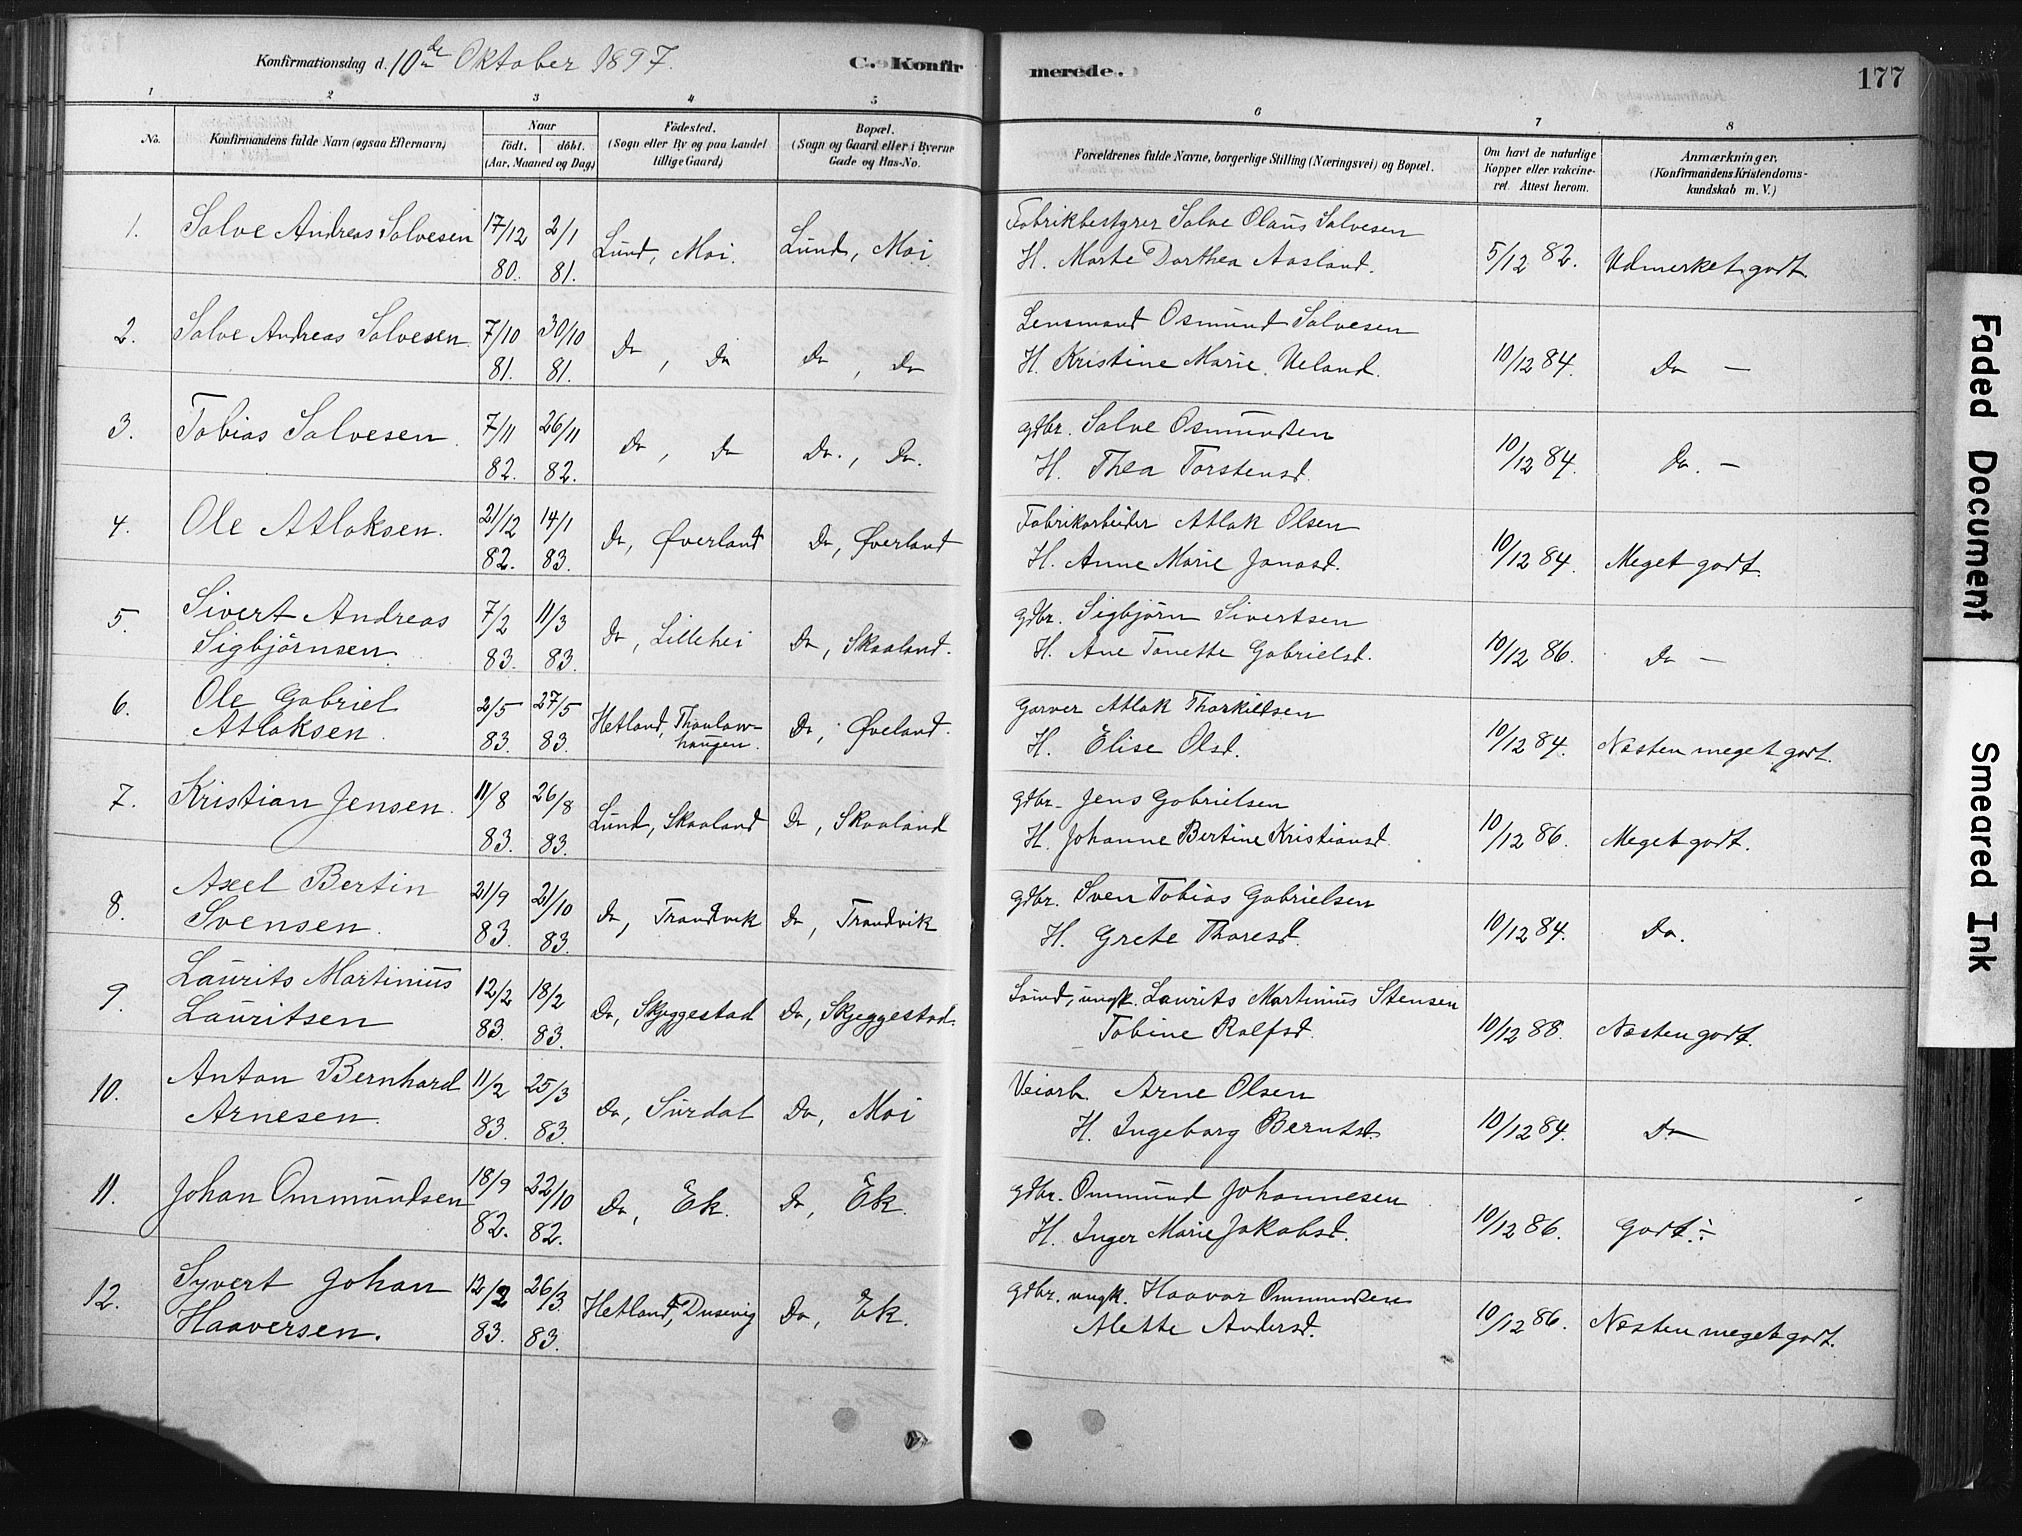 Konfirmationsdag d. 10de Oktober 1897.
C. Konfirmerede.
177
1 2 3 4 5 6 7 8
No.
Konfirmandens fulde Navn (ogsaa Efternavn)
Naar
födt. döbt.
(Aar, Maaned og Dag)
Födested.
(Sogn eller By og paa Landet
tillige Gaard)
Bopæl.
(Sogn og Gaard eller i Byerne
Gade og Hus-No.
Forældrenes fulde Navne, borgerlige Stilling (Næringsvei) og Bopæl.
Om havt de naturlige
Kopper eller vakcine-
ret. Attest herom.
Anmærkninger.
(Konfirmandens Kristendoms-
kundskab m. V.)
1. Salve Andreas Salvesen 17/12 80. 2/1 81. Lund, Moi. Lund, Moi Fabrikbestyrer Salve Olaus Salvesen
H. Marte Dorthea Aasland. 5/12 82. Udmerket godt
2. Salve Andreas Salvesen. 7/10 81. 30/10 81. Do, Do Do, Do Lensmand Osmund Salvesen
H. Kristine Marie Ueland. 10/12 84. Do —
3. Tobias Salvesen. 7/11 82. 26/11 82. Do, Do Do., Do. gdbr. Salve Osmundsen
H. Thea Torstensd. 10/12 84. Do. —
4. Ole Atlaksen. 21/12 82. 14/1 83. Do, Øverland Do, Øverland Fabrikarbeider Atlak Olsen
H. Anne Marie Jonasd. 10/12 84. Meget godt.
5. Sivert Andreas
Sigbjörnsen. 7/2 83. 11/3 83. Do, Lillehei Do, Skaaland. gdbr. Sigbjörn Sivertsen
H. Ane Tonette Gabrielsd. 10/12 86. Do —
6. Ole Gabriel
Atlaksen. 2/5 83. 27/5 83. Hetland, Thaulow-
haugen. Do, Øveland. Garver Atlak Thorkildsen
H. Elise Olsd. 10/12 84. Næsten meget godt.
7. Kristian Jensen. 11/8 83. 26/8 83. Lund, Skaaland Do, Skaaland gdbr. Jens Gabrielsen
H. Johanne Bertine Kristiansd. 10/12 86. Meget godt.
8. Axel Bertin
Svensen. 21/9 83. 21/10 83. Do, Trandvik Do, Trandvik gdbr. Sven Tobias Gabrielsen
H. Grete Thoresd. 10/12 84. Do.
9. Laurits Martinius
Lauritsen 12/2 83. 18/2 83. Do, Skjeggestad Do, Skjeggestad. ungk. Laurits Martinius Stensen
Tobine Rolfsd. 10/12 88. Næsten godt.
10. Anton Bernhard
Arnesen. 11/2 83. 25/3 83. Do, Surdal Do, Moi Veiarb. Arne Olsen
H. Ingeborg Berntsd. 10/12 84. Do
11. Johan Ommundsen 18/9 82. 22/10 82. Do, Ek. Do, Ek. gdbr. Ommund Johannesen
H. Inger Marie Jakobsd. 10/12 86. Godt.
12. Syvert Johan
Haaversen. 12/2 83. 26/3 83. Hetland, Dusevig Do, Ek. gdbr. ungk. Haavar Ommundsen
Alette Andersd. 10/12 86. Næsten meget godt.
Faded Document
Smeared Ink